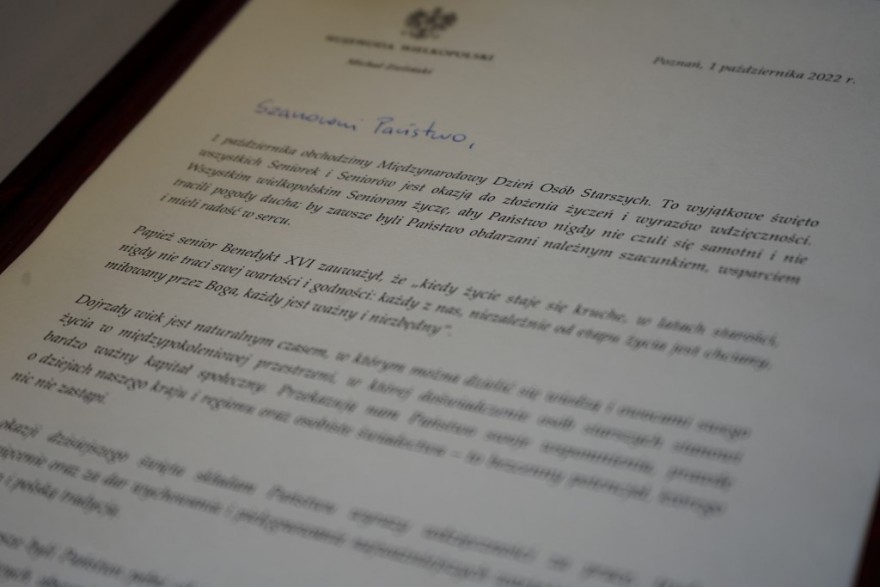 WOJEWODA WIELKOPOLSKI
Michał Zieliński
Poznań, 1 października 2022 r.
Szanowni Państwo,
1 października obchodzimy Międzynarodowy Dzień Osób Starszych. To wyjątkowe święto
wszystkich Seniorek i Seniorów jest okazją do złożenia życzeń i wyrazów wdzięczności.
Wszystkim wielkopolskim Seniorom życzę, aby Państwo nigdy nie czuli się samotni i nie
tracili pogody ducha; by zawsze byli Państwo obdarzani należnym szacunkiem, wsparciem
i mieli radość w sercu.
Papież senior Benedykt XVI zauważył, że „kiedy życie staje się kruche, w latach starości,
nigdy nie traci swej wartości i godności: każdy z nas, niezależnie od etapu życia jest chciany,
miłowany przez Boga, każdy jest ważny i niezbędny”.
Dojrzały wiek jest naturalnym czasem, w którym można dzielić się wiedzą i owocami swego
życia w międzypokoleniowej przestrzeni, w której doświadczenie osób starszych stanowi
bardzo ważny kapitał społeczny. Przekazują nam Państwo swoje wspomnienia, prawdę
o dziejach naszego kraju i regionu oraz osobiste świadectwa – to bezcenny potencjał, którego
nic nie zastąpi.
okazji dzisiejszego święta składam Państwu wyrazy wdzięczności za
oraz za dar wychowania i pielęgnowania
i polską tradycją.
byli Państwo